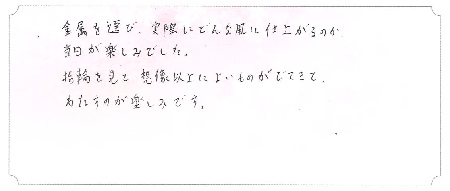 金属を選び、実際にどんな風に仕上がるのか
当日が楽しみでした。
指輪を見て想像以上によいものができてきて、
わたすのが楽しみです。